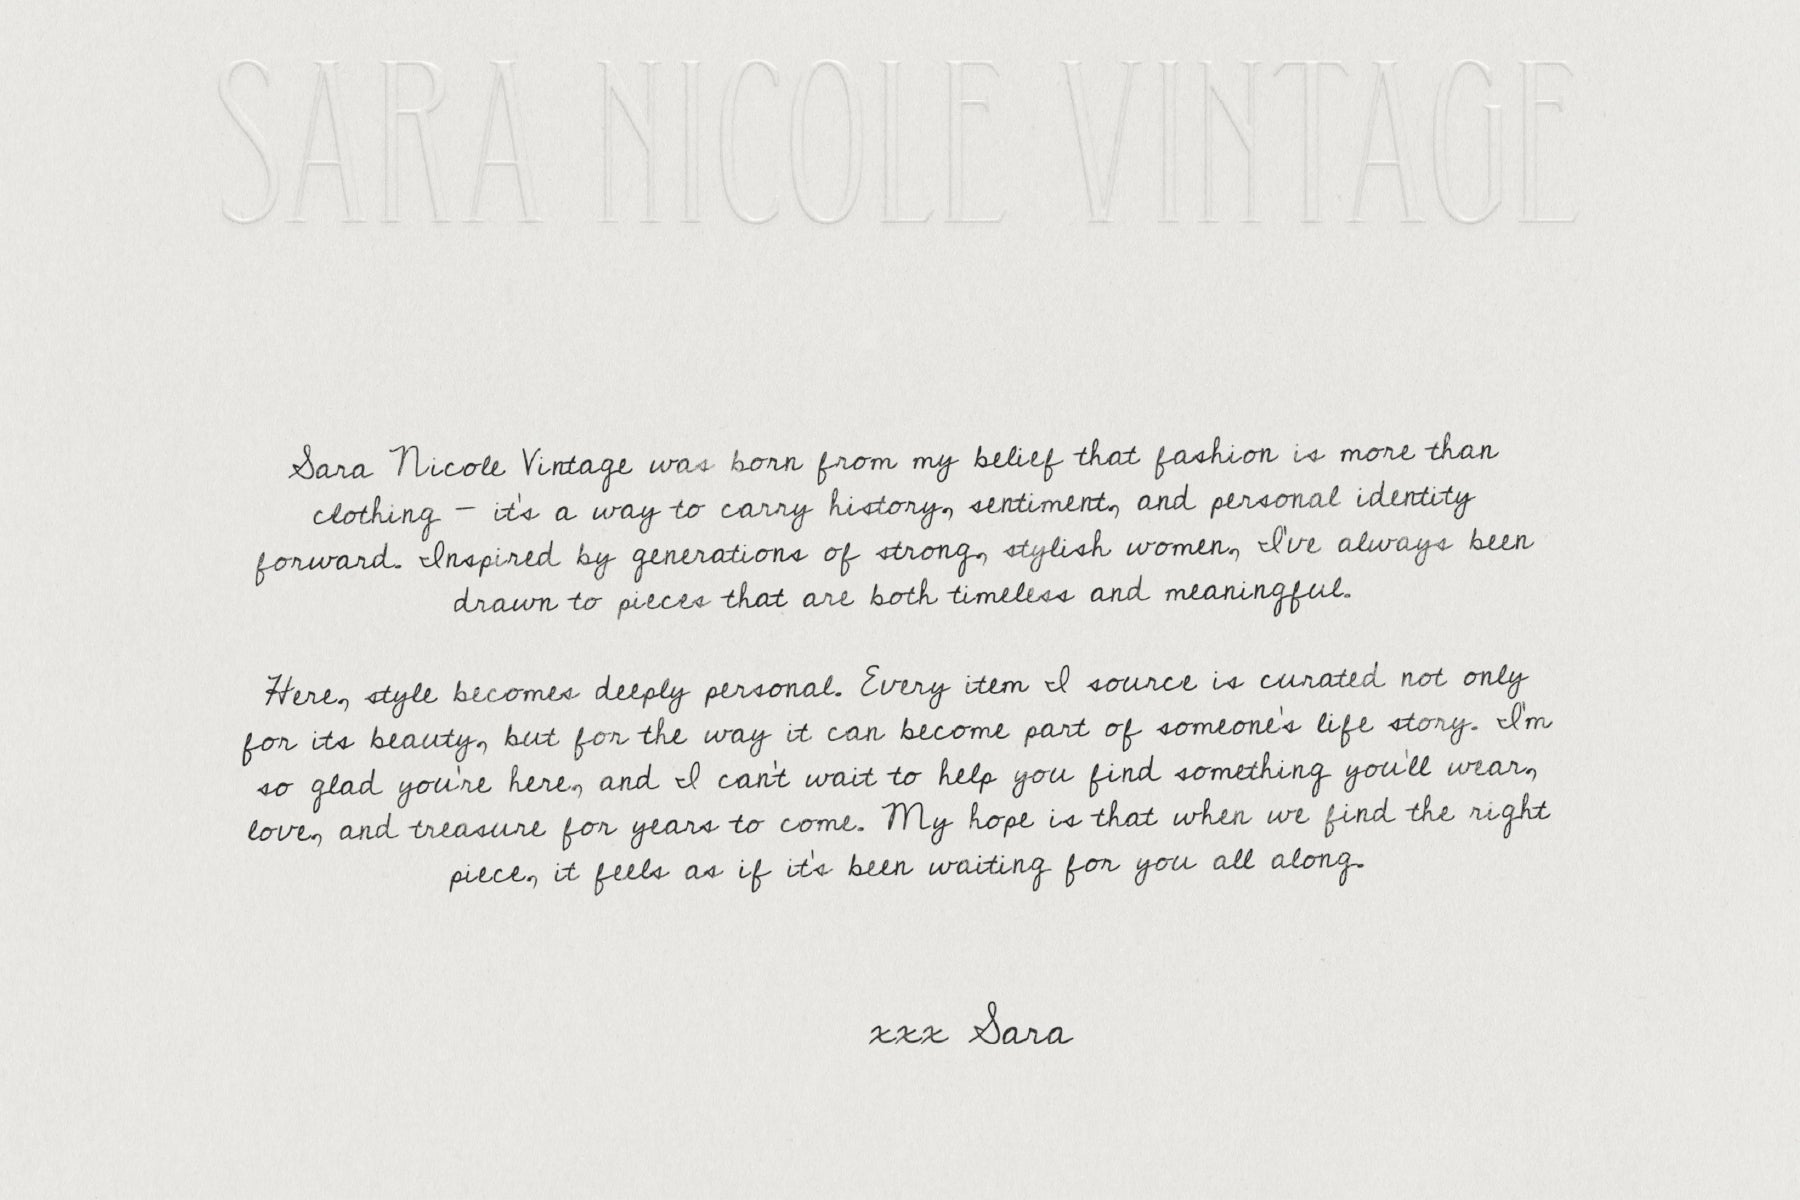 SARA NICOLE VINTAGE
Sara Nicole Vintage was born from my belief that fashion is more than
clothing – it's a way to carry history, sentiment, and personal identity
forward. Inspired by generations of strong, stylish women, I've always been
drawn to pieces that are both timeless and meaningful.
Here, style becomes deeply personal. Every item I source is curated not only
for its beauty, but for the way it can become part of someone's life story. I'm
so glad you're here, and I can't wait to help you find something you'll wear,
love, and treasure for years to come. My hope is that when we find the right
piece, it feels as if it's been waiting for you all along.
xxx Sara